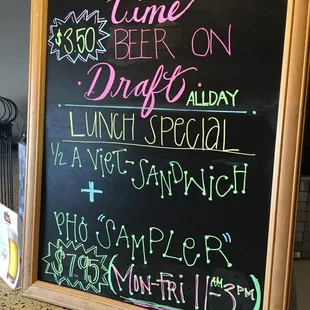 Time
$3.50 BEER ON
Draft ALLDAY
LUNCH SPECIAL
1/2 A VIET-SANDWICH
+
PHO "SAMPLER"
$7.95 (MON-FRI 11AM-3PM)